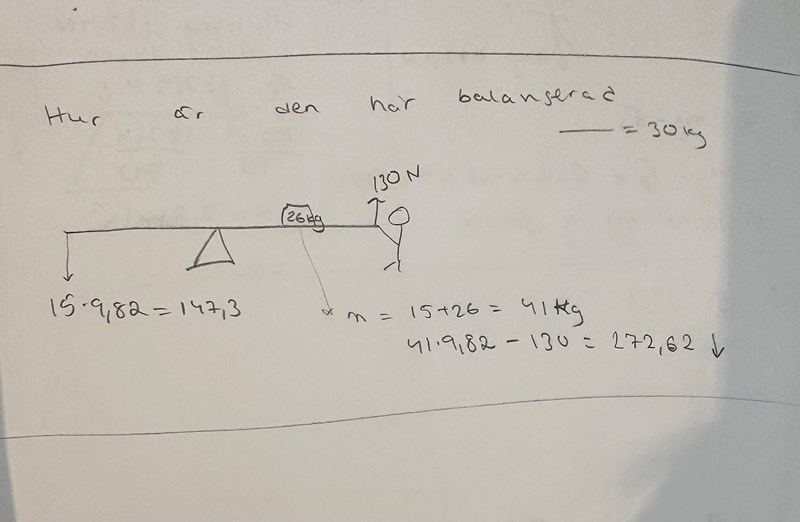 Hur är den här balanserad
— = 30kg
130 N
26kg
15·9,82 = 147,3
m = 15+26 = 41 kg
41·9,82 - 130 = 272,62 ↓